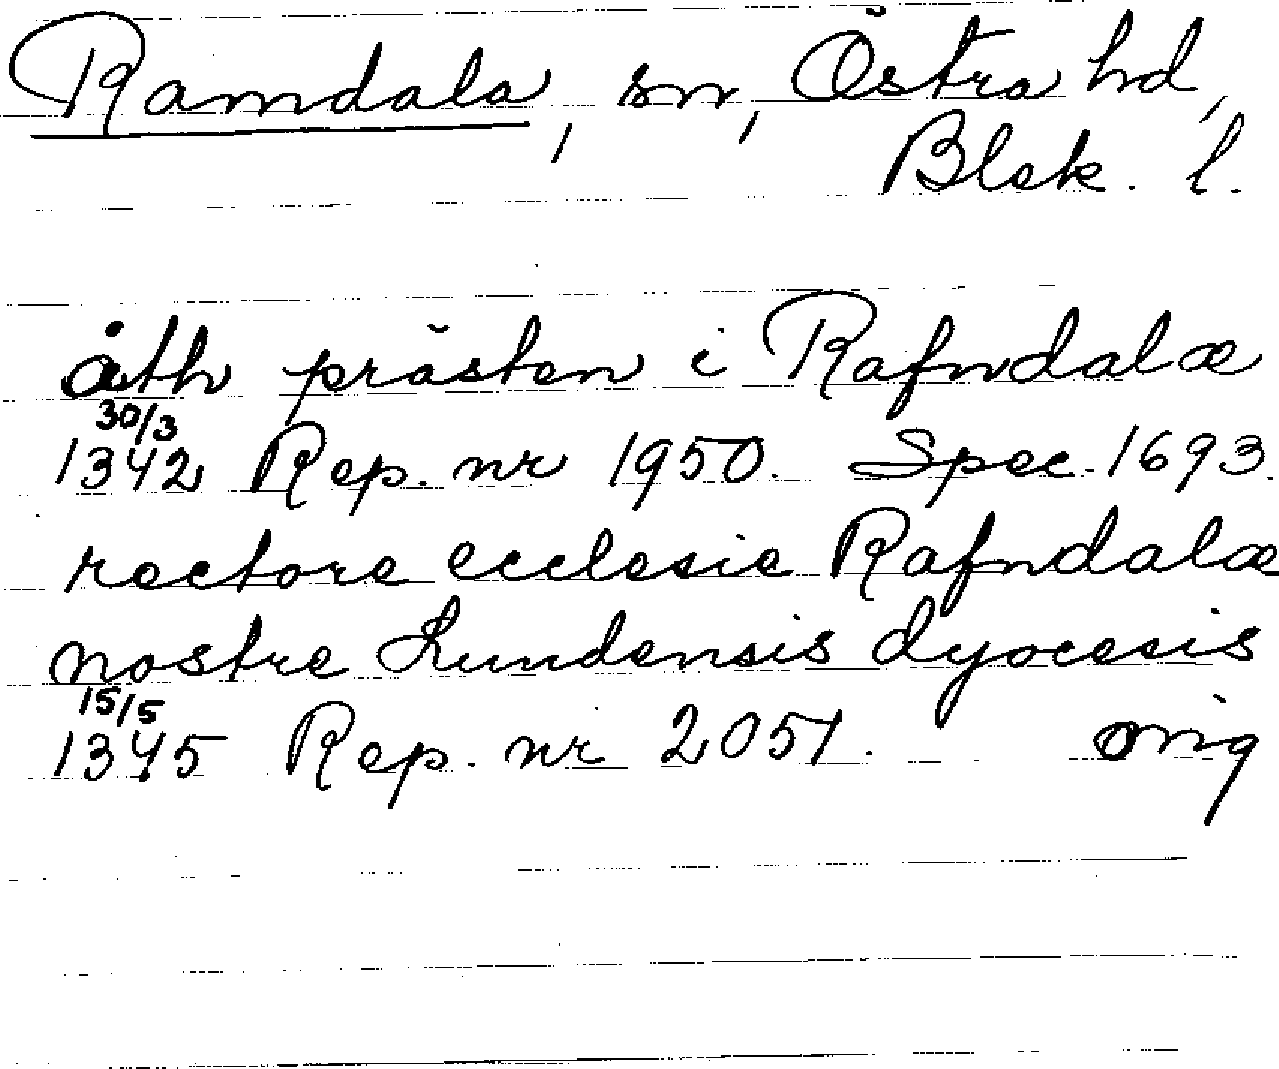 Ramdala, sn, Östra hd,
Blek. l.
åth prästen i Rafndalæ
30/3
1342 Rep. nr 1950. Spec. 1693.
rectore ecclesie Rafndalæ
nostre Lundensis dyocesis
15/5
1345 Rep. nr 2051. orig